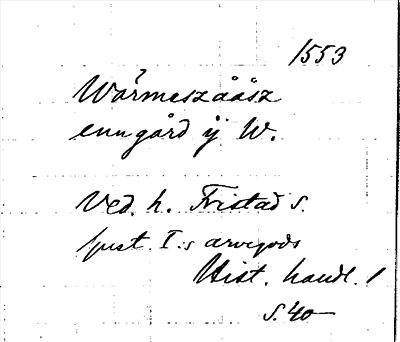 1553
Wärmeszååsz
enn gård ÿ W.
Ved. h. Fristad s.
Gust. I:s arvegods
Hist. handl. 1
s. 40